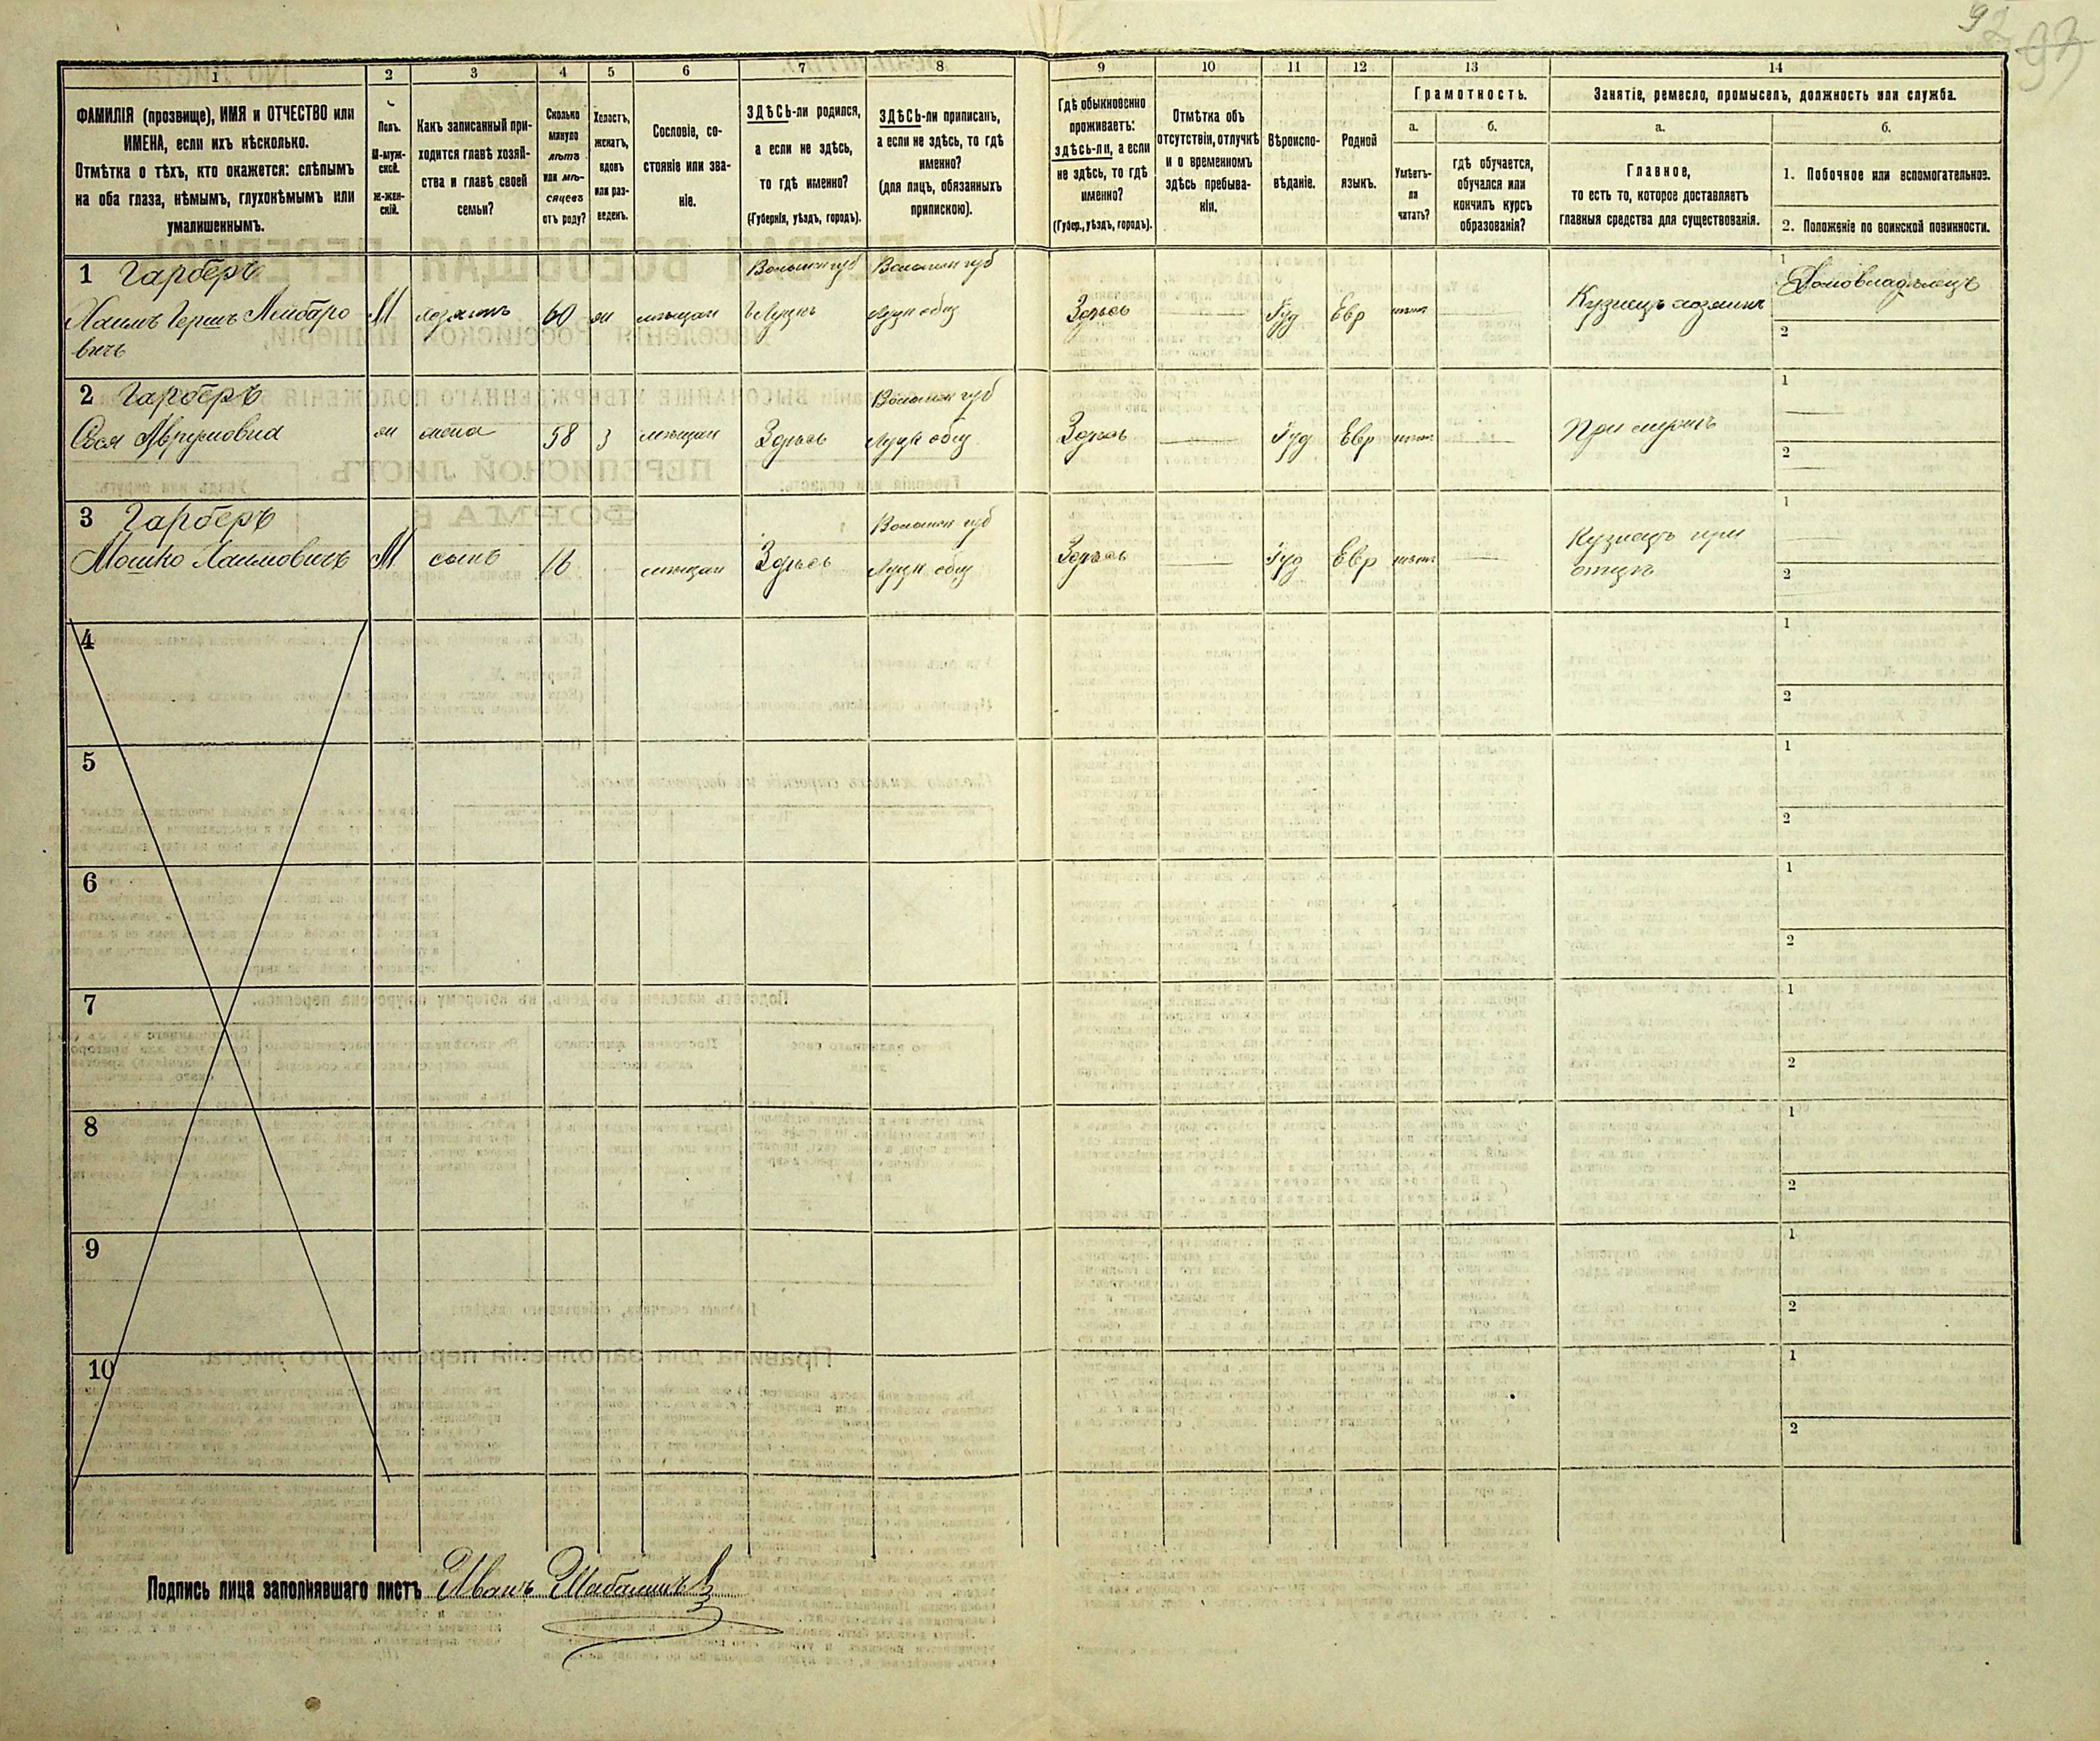 92 97
1
2
3
4
5
6
7
8
9
10
11
12
13
14
ФАМИЛІЯ (прозвище), ИМЯ и ОТЧЕСТВО или
ИМЕНА, если ихъ нѣсколько.
Отмѣтка о тѣхъ, кто окажется: слѣпымъ
на оба глаза, нѣмымъ, глухонѣмымъ или
умалишеннымъ.
Полъ.
М-муж-
ской.
Ж-жен-
скій.
Какъ записанный при-
ходится главѣ хозяй-
ства и главѣ своей
семьи?
Сколько
минуло
лѣтъ
или мѣ-
сяцевъ
отъ роду?
Холостъ,
женатъ,
вдовъ
или раз-
веденъ.
Сословіе, со-
стояніе или зва-
ніе.
ЗДѢСЬ-ли родился,
а если не здѣсь,
то гдѣ именно?
(Губернія, уѣздъ, городъ).
ЗДѢСЬ-ли приписанъ,
а если не здѣсь, то гдѣ
именно?
(для лицъ, обязанныхъ
припискою).
Гдѣ обыкновенно
проживаетъ:
здѣсь-ли, а если
не здѣсь, то гдѣ
именно?
(Губер., уѣздъ, городъ).
Отмѣтка объ
отсутствіи, отлучкѣ
и о временномъ
здѣсь пребыва-
ніи.
Вѣроиспо-
вѣданіе.
Родной
языкъ.
Грамотность.
а.
Умѣетъ-
ли
читать?
б.
гдѣ обучается,
обучался или
кончилъ курсъ
образованія?
Занятіе, ремесло, промыселъ, должность или служба.
а.
Главное,
то есть то, которое доставляетъ
главныя средства для существованія.
б.
1. Побочное или вспомогательное.
2. Положеніе по воинской повинности.
1 Гарберъ
Хаимъ Герш Лейбаро
вичъ
М
хозяинъ
60
ж
мѣщан
Волынск губ
г Луцкъ
Волынск губ
Луцк общ
Здѣсь
Іуд
Евр
нѣтъ
Кузнецъ хозяинъ
1
Домовладѣлецъ
2
2 Гарберъ
Сося Аврумовна
ж
жена
58
З
мѣщан
Здѣсь
Волынск губ
Луцк общ
Здѣсь
Іуд
Евр
нѣтъ
При мужѣ
1
2
3 Гарберъ
Мошко Хаимовичъ
М
сынъ
16
мѣщан
Здѣсь
Волынск губ
Луцк общ
Здѣсь
Іуд
Евр
нѣтъ
Кузнецъ при
отцѣ
1
2
4
1
2
5
1
2
6
1
2
7
1
2
8
1
2
9
1
2
10
1
2
Подпись лица заполнявшаго листъ Иванъ